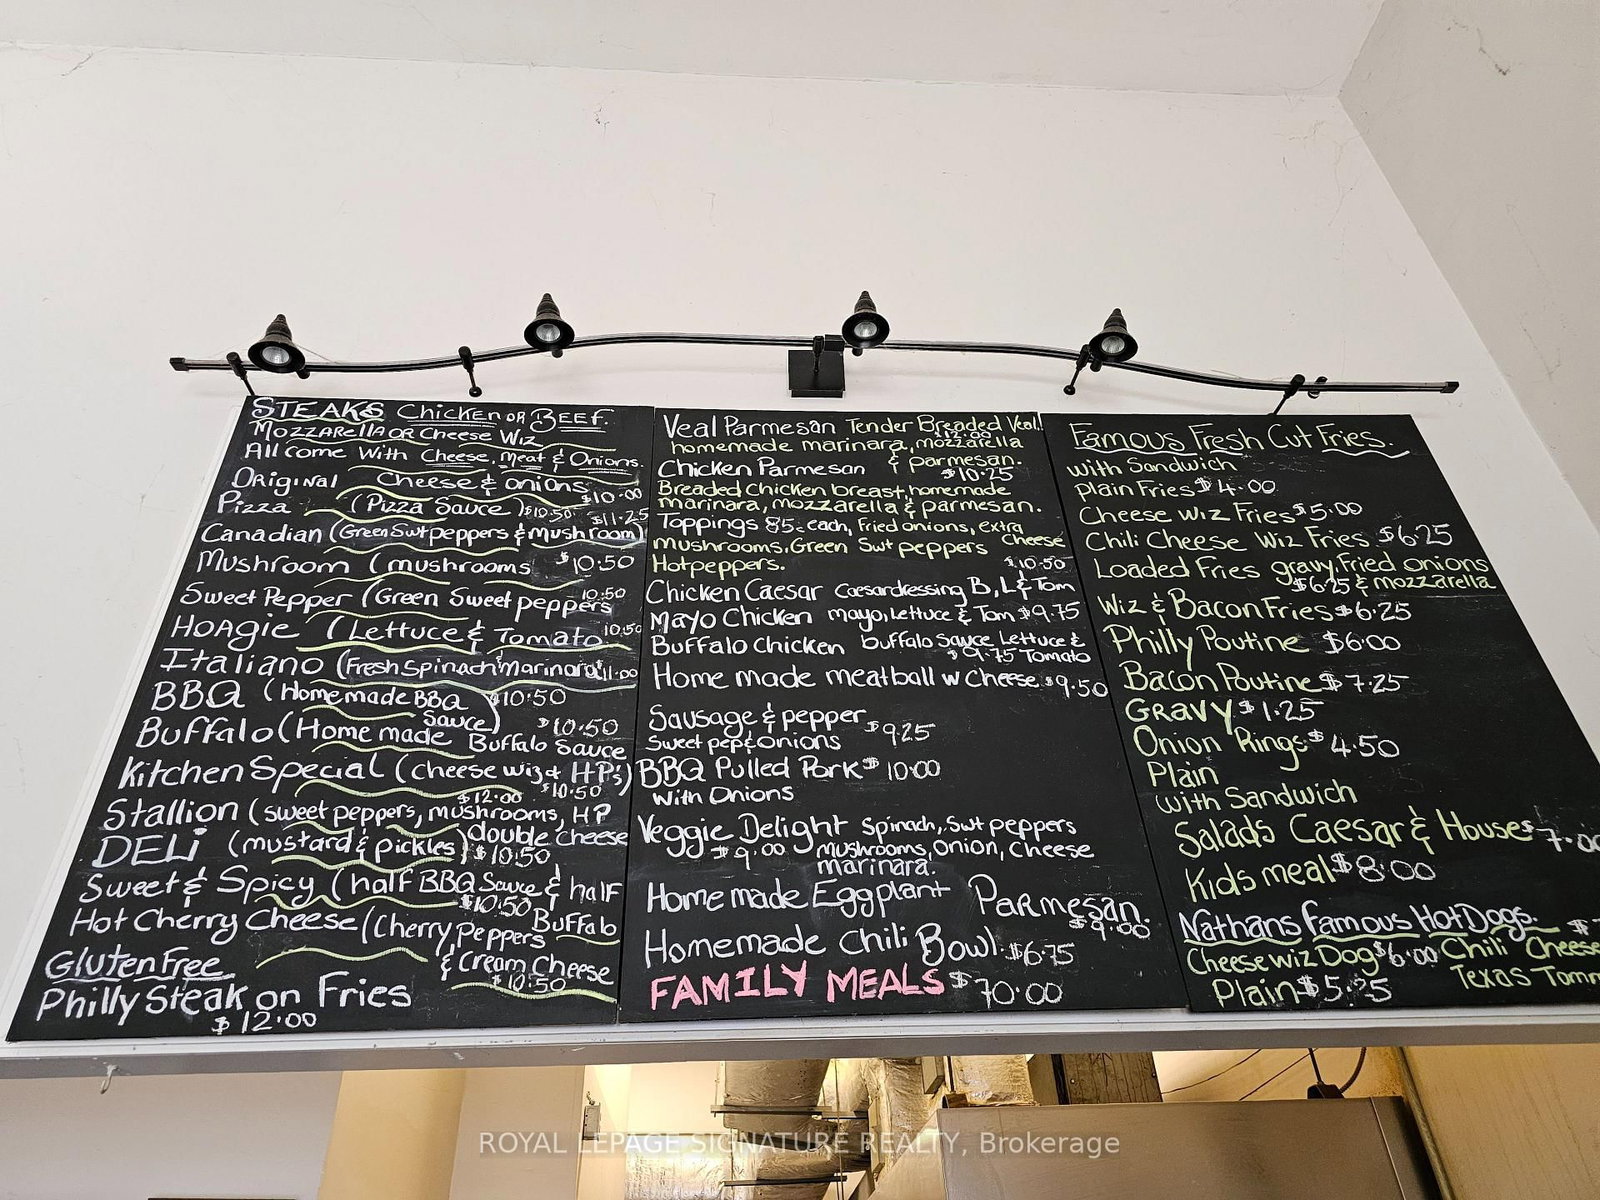 STEAKS Chicken or BEEF.
Mozzarella or Cheese Wiz
All come With Cheese, Meat & Onions.
Original Cheese & onions $10.00
Pizza (Pizza Sauce) $10.50
$11.25
Canadian (Green Swt peppers & mushroom)
Mushroom (mushrooms $10.50
Sweet Pepper (Green Sweet peppers 10.50
HOAgie (Lettuce & Tomato 10.50
Italiano (Fresh Spinach Marinara $11.00
BBQ (Homemade BBQ Sauce) $10.50
Buffalo (Home made Buffalo Sauce $10.50
Kitchen Special (Cheese wiz & HP's) $10.50
Stallion (sweet peppers, mushrooms, HP double cheese $12.00
DELi (mustard & pickles) $10.50
Sweet & Spicy (half BBQ Sauce & half Buffalo $10.50
Hot Cherry Cheese (Cherry Peppers & Cream Cheese $10.50
Gluten Free
Philly Steak on Fries
$12.00
Veal Parmesan Tender Breaded Veal,
homemade marinara, mozzarella
& parmesan.
Chicken Parmesan $10.25
Breaded Chicken breast, homemade
marinara, mozzarella & parmesan.
Toppings 85¢ each, fried onions, extra Cheese
mushrooms, Green Swt peppers
Hotpeppers.
$10.50
Chicken Caesar Caesardressing B, L & Tom
Mayo Chicken mayo, Lettuce & Tom $9.75
Buffalo Chicken buffalo sauce Lettuce &
$9.75 Tomato
Home made meatball w Cheese $9.50
Sausage & pepper $9.25
Sweet pep & onions
BBQ Pulled Pork $10.00
With Onions
Veggie Delight Spinach, Swt peppers
$9.00 mushrooms, onion, cheese
marinara.
Home made Eggplant Parmesan.
$9.00
Homemade Chili Bowl. $6.75
FAMILY MEALS $70.00
Famous Fresh Cut Fries.
with Sandwich
plain Fries $4.00
Cheese Wiz Fries $5.00
Chili Cheese Wiz Fries $6.25
Loaded Fries gravy, fried onions
$6.25 & mozzarella
Wiz & Bacon Fries $6.25
Philly Poutine $6.00
Bacon Poutine $7.25
GRAVY $1.25
Onion Rings $4.50
Plain
with Sandwich
Salads Caesar & House $7.00
Kids meal $8.00
Nathans Famous Hot Dogs.
Cheese wiz Dog $6.00 Chili Cheese
Plain $5.25 Texas Tommy
ROYAL LEPAGE SIGNATURE REALTY, Brokerage